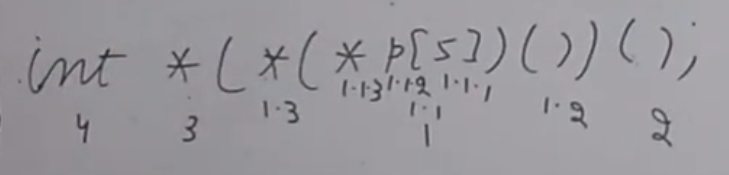 int *(*(* p[5])())();
1.1.3 1.1.2 1.1.1
4 3 1.3 1.1 1.2 2
1